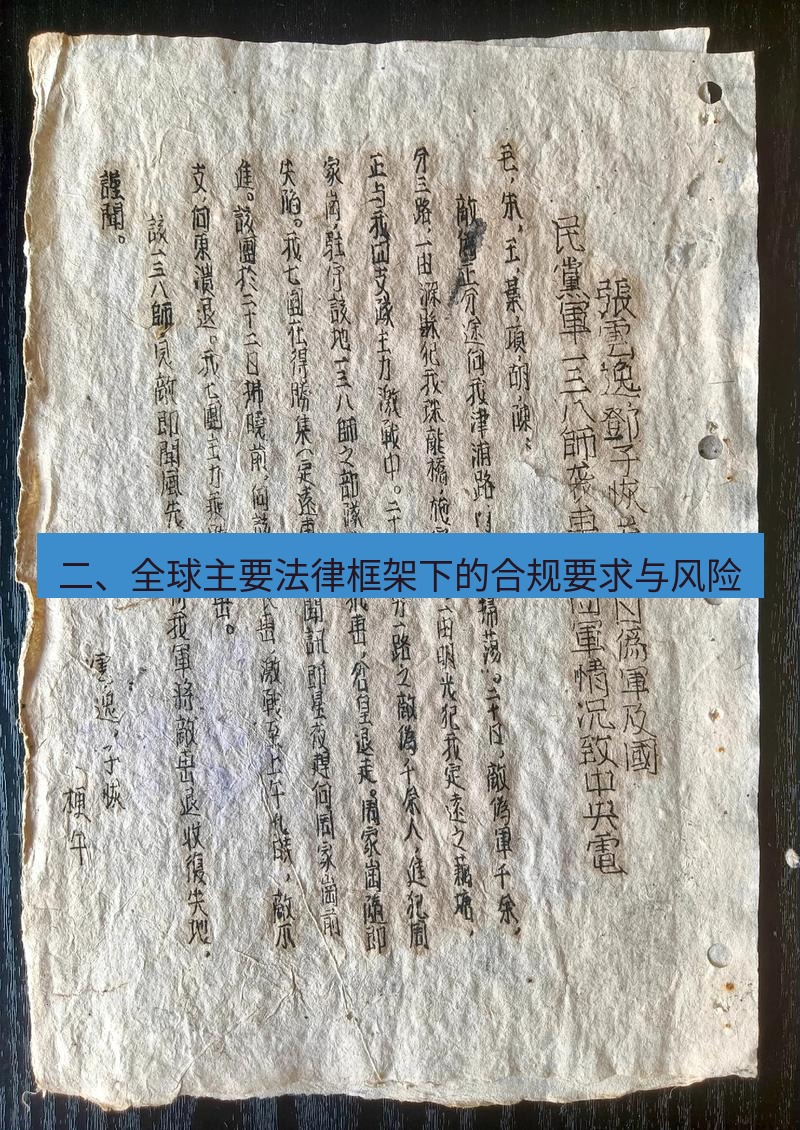 張雲逸鄧子恢 偽軍及國
民黨軍一三八師襲 軍情況致中央電
毛，朱，王，葉，項，胡，陳：
敵偽正分途向我津浦路 掃蕩。二十日，敵偽軍千余，
分三路，一由滁縣犯我珠龍橋，施 由明光犯我定遠之藕塘，
正与我四支 主力激戰中。二十 一路之敵偽千余人，進犯周
家崗，駐守該地一三八師之部隊 我击，倉皇退走。周家崗隨即
失陷。我七團在得勝集（定遠東 聞訊即星夜趕向周家崗前
進。該團於二十二日拂曉前，向該 击，激戰至上午九時，敵不
支，向東潰退。我七團主力乘 击。
該一三八師，見敵即聞風先 我軍將敵击退收復失地，
謹聞。
雲逸，子恢
梗午
二、全球主要法律框架下的合规要求与风险